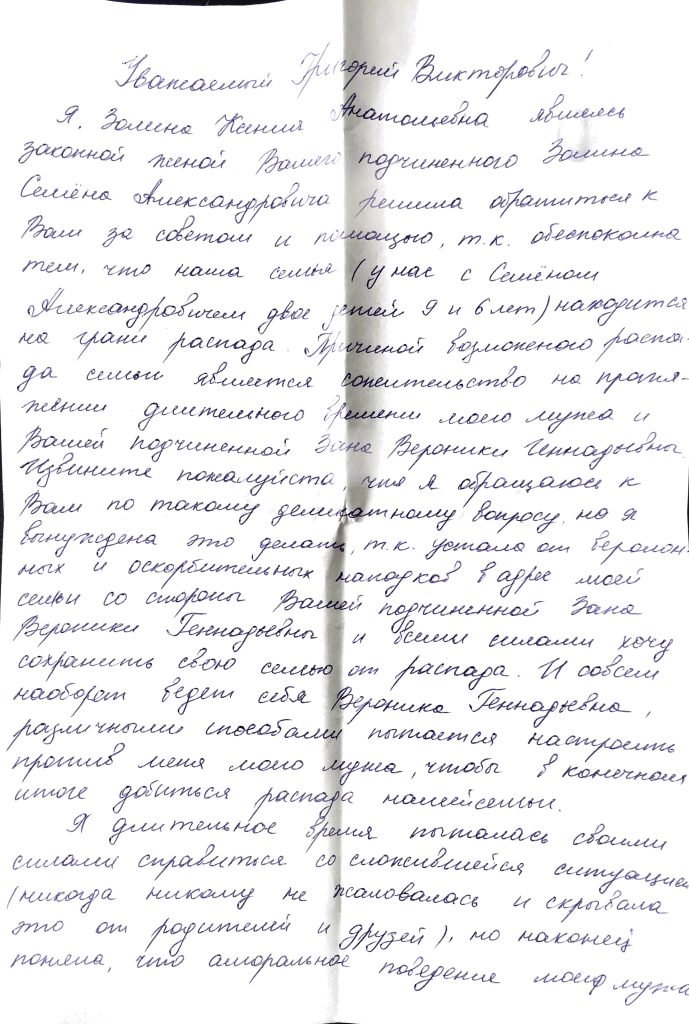 Уважаемый Григорий Викторович!
Я, Золина Ксения Анатольевна являясь
законной женой Вашего подчиненного Золина
Семёна Александровича решила обратиться к
Вам за советом и помощью, т.к. обеспокоена
тем, что наша семья (у нас с Семёном
Александровичем двое детей 9 и 6 лет) находится
на грани распада. Причиной возможного распа-
да семьи является сожительство на протя-
жении длительного времени моего мужа и
Вашей подчиненной Зана Вероники Геннадьевны.
Извините пожалуйста, что я обращаюсь к
Вам по такому деликатному вопросу, но я
вынуждена это делать, т.к. устала от веролом-
ных и оскорбительных нападков в адрес моей
семьи со стороны Вашей подчиненной Зана
Вероники Геннадьевны и всеми силами хочу
сохранить свою семью от распада. И совсем
наоборот ведет себя Вероника Геннадьевна,
различными способами пытается настроить
против меня моего мужа, чтобы в конечном
итоге добиться распада нашей семьи.
Я длительное время пыталась своими
силами справиться со сложившейся ситуацией
(никогда никому не жаловалась и скрывала
это от родителей и друзей), но наконец
поняла, что аморальное поведение моего мужа